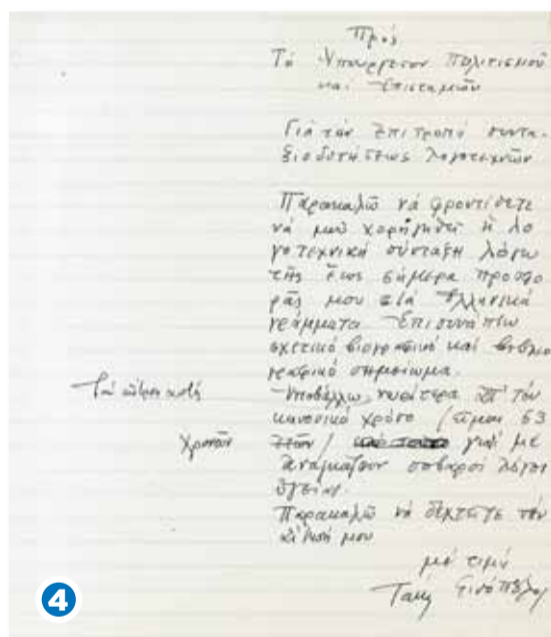 Πρός
Τό Ὑπουργεῖον Πολιτισμοῦ
καί Ἐπιστημῶν
Γιά τήν Ἐπιτροπή συντα-
ξιοδοτήσεως λογοτεχνῶν
Παρακαλῶ νά φροντίσετε
νά μοῦ χορηγηθεῖ ἡ λο
γοτεχνική σύνταξη λόγω
τῆς ἕως σήμερα προσφο
ρᾶς μου στά Ἑλληνικά
γράμματα Ἐπισυνάπτω
σχετικό βιογραφικό καί βιβλιο
γραφικό σημείωμα.
Τήν αἴτηση αὐτή
Ὑποβάλλω, νωρίτερα ἀπ' τόν
κανονικό χρόνο / εἶμαι 63
χρονῶν
ἐτῶν / γιατί με
ἀναγκάζουν σοβαροί λόγοι
ὑγείας.
Παρακαλῶ νά δεχτεῖτε τήν
αἴτησή μου
μέ τιμή
Τάκης Σινόπουλος
4